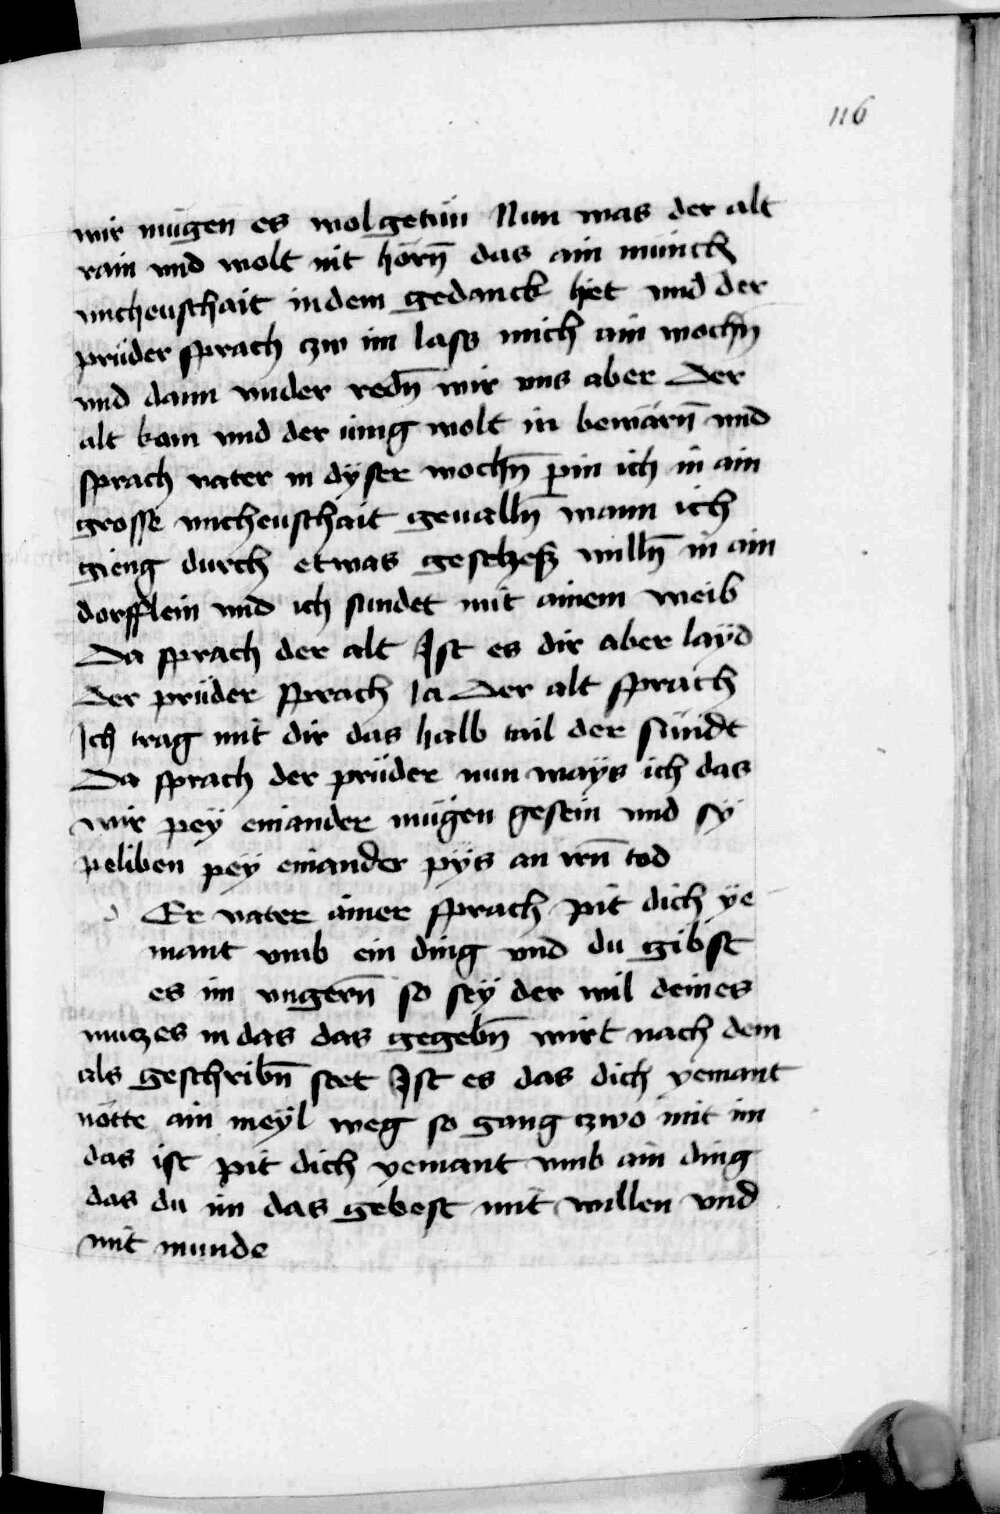 116
wir mügen es wol getün Nun was der alt
rain vnd wolt nit hörn̄ das ain münich
vncheuschait in dem gedanck het vnd der
prüder sprach zw im lass mich ain wochn̄
vnd dann vnder redn̄ wir vns aber Der
alt kam vnd der iung wolt in bewärn̄ vnd
sprach vater in dÿser wochn̄ pin ich in ain
grosse vncheuschait geualln̄ wann ich
gieng durch etwas gescheſz willn̄ in ain
dorfflein vnd ich sundet mit ainem weib
Da sprach der alt Ist es dir aber laÿd
Der prüder sprach Ja Der alt sprach
Ich trag mit dir das halb tail der sündt
Da sprach der prüder nun waÿs ich das
wir peÿ einander mügen gesein vnd sÿ
peliben peÿ einander pÿs an irn̄ tod
Er vater ainer sprach pit dich ÿe
mant vmb ein ding vnd du gibst
es im vngern̄ so seÿ der wil deines
mutzes in das das gegebn̄ wirt nach dem
als geschribn̄ stet Ist es das dich yemant
nötte ain meÿl weg so gang zwo mit im
das ist pit dich yemant vmb ain ding
das du im das gebest mit willen vnd
mit munde